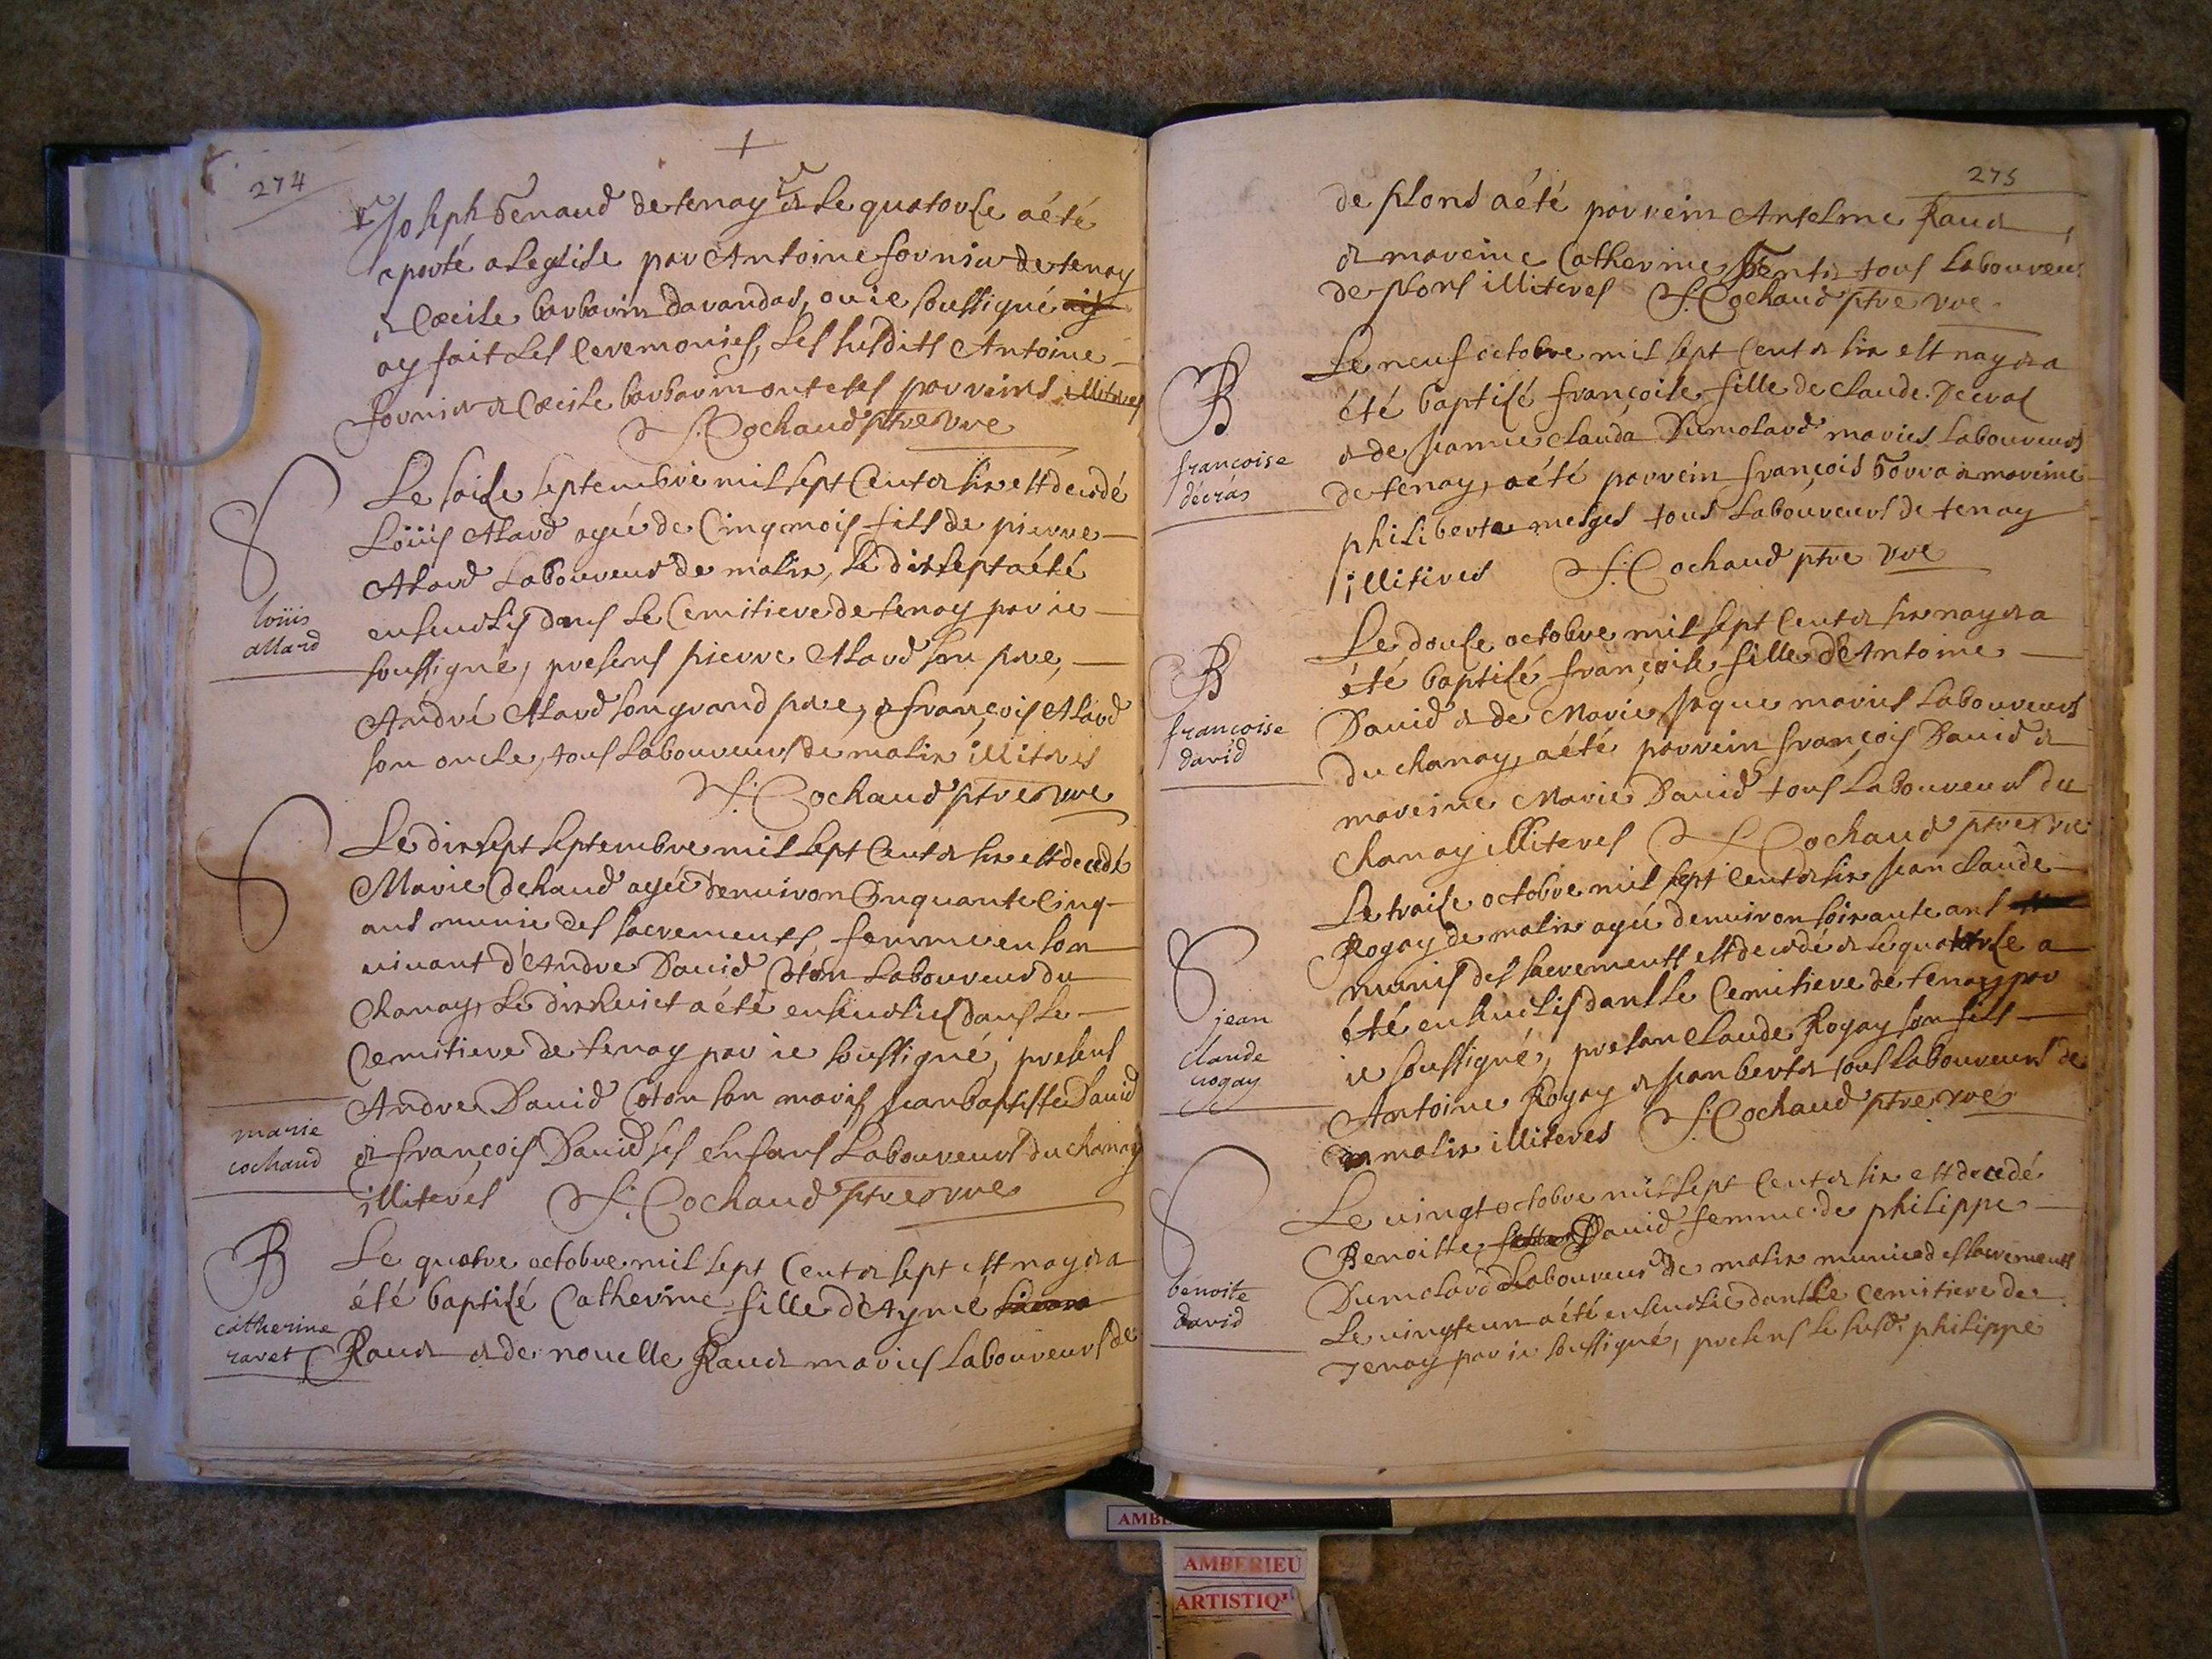 274
Joseph Genaud de tenay & le quatorse a été
aporté a leglise par Antoine fornier de tenay
& Cœcile barbarin darandas, ou ie soussigné
ay fait les Ceremonies, les susdits Antoine
fornier & Cœcile barbarin ont etes parreins illiteres
S. Cochaud ptre vre
Le saise septembre mil sept Cent & six est decedé
Loüis Alard agée de Cinq mois fils de pierre
Alard laboureur de malix, le dix sept a été
enseuelis dans le Cemitiere de tenay par ie
soussigné, presens pierre Alard son pere,
André Alard son grand pere, & françois Alard
son oncle, tous laboureurs de malix illiteres
S. Cochaud ptre vre
loüis
allard
Le dix sept septembre mil sept Cent & six est decedé
Marie Cochaud agée denuiron Cinquante Cinq
ans munie des sacrements, femme en son
uiuant d'Andre Dauid Coton laboureur du
Chanay, le dix huict a été enseuelies dans le
Cemitiere de tenay par ie soussigné, presens
Andre Dauid Coton son maris, jean baptiste Dauid
& françois Dauid ses enfans laboureurs du chanay
illiteres S. Cochaud ptre vre
marie
cochaud
B
Le quatre octobre mil sept Cent & sept est nay & a
été baptisé Catherine fille d'Ayme
Rauet & de nouelle Rauet maries laboureurs de
catherine
ravet
275
de plons a été parrein Antelme Rauet
& mareine Catherine tous laboureurs
de plons illiteres S. Cochaud ptre vre
B
francoise
décrás
Le neuf octobre mil sept Cent & six est nay & a
été baptisé françoise fille de claude Decras
& de jeanne clauda Dumolard maries laboureurs
de tenay, a été parrein françois & mareine
philiberte mesges tous laboureurs de tenay
illiteres S. Cochaud ptre vre
B
francoise
david
Le douse octobre mil sept Cent & six nay & a
été baptisé françoise fille d'Antoine
Dauid & de Marie maries laboureurs
du chanay, a été parrein françois Dauid &
mareine Marie Dauid tous laboureurs du
chanay illiteres S. Cochaud ptre vre
Le traise octobre mil sept Cent & six jean claude
Rogay de malix agée denuiron soixante ans
munis des sacrements est decedé & le quatorse a
été enseuelis dans le Cemitiere de tenay par
ie soussigné, presan claude Rogay son fils
Antoine Rogay & jean bertet tous laboureurs de
malix illiteres S. Cochaud ptre vre
jean
claude
rogay
Le uingt octobre mil sept Cent & six est decedé
Benoitte Dauid femme de philippe
Dumolard laboureur de malix munie des sacrements
le uingt eun a été enseuelie dans le Cemitiere de
Tenay par ie soussigné, presens le susd philippe
benoite
david
AMBERIEU
ARTISTIQ